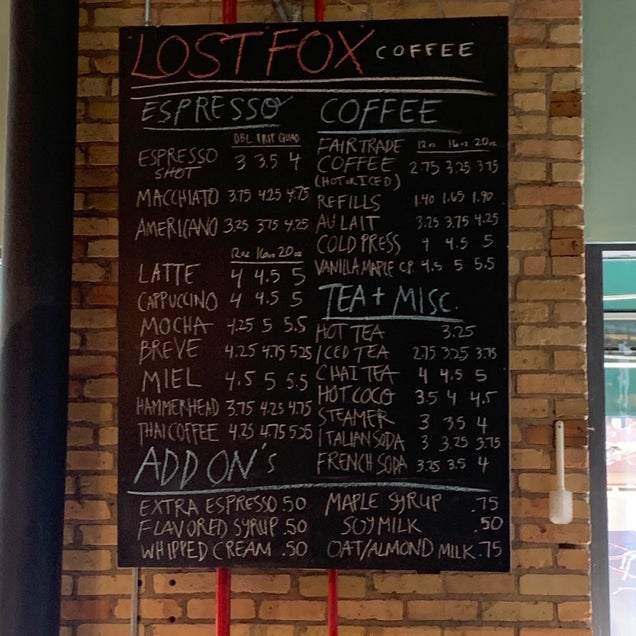 LOST FOX COFFEE
ESPRESSO
DBL TRIP QUAD
ESPRESSO SHOT 3 3.5 4
MACCHIATO 3.75 4.25 4.75
AMERICANO 3.25 3.75 4.25
12oz 16oz 20oz
LATTE 4 4.5 5
CAPPUCCINO 4 4.5 5
MOCHA 4.25 5 5.5
BREVE 4.25 4.75 5.25
MIEL 4.5 5 5.5
HAMMERHEAD 3.75 4.25 4.75
THAI COFFEE 4.25 4.75 5.25
COFFEE
FAIR TRADE 12oz 16oz 20oz
COFFEE 2.75 3.25 3.75
(HOT OR ICED)
REFILLS 1.40 1.65 1.90
AU LAIT 3.25 3.75 4.25
COLD PRESS 4 4.5 5
VANILLA MAPLE C.P. 4.5 5 5.5
TEA + MISC.
HOT TEA 3.25
ICED TEA 2.75 3.25 3.75
CHAI TEA 4 4.5 5
HOT COCO 3.5 4 4.5
STEAMER 3 3.5 4
ITALIAN SODA 3 3.25 3.75
FRENCH SODA 3.25 3.5 4
ADD ON's
EXTRA ESPRESSO .50
FLAVORED SYRUP .50
WHIPPED CREAM .50
MAPLE SYRUP .75
SOY MILK .50
OAT/ALMOND MILK .75